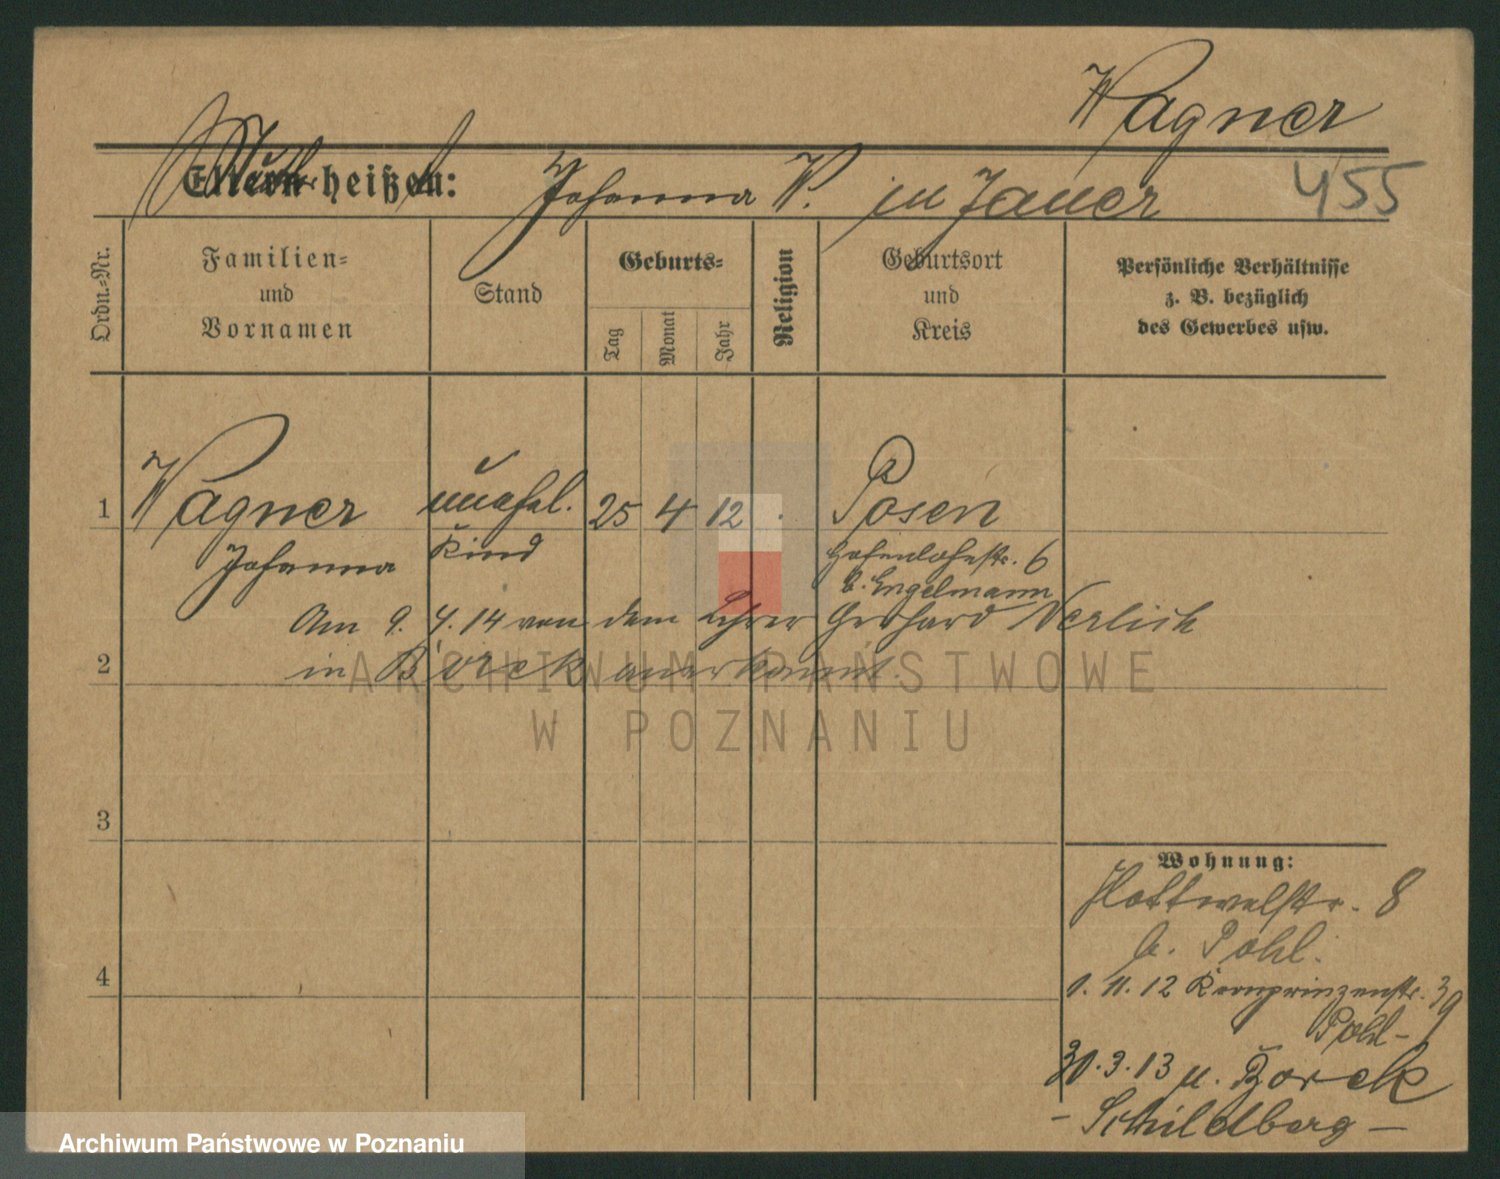 Wagner
Mutter
Eltern heißen:
Johanna W. in Jauer
455
Ordn.-Nr.
Familien-
und
Vornamen
Stand
Geburts-
Tag
Monat
Jahr
Religion
Geburtsort
und
Kreis
Persönliche Verhältnisse
z. B. bezüglich
des Gewerbes usw.
1 Wagner unehel. 25 4 12 Posen
Johanna Kind Hohenlohestr. 6
b. Engelmann
Am 9. 4. 14 von dem Lehrer Gerhard
2 in Borek anerkannt.
ARCHIWUM PAŃSTWOWE
W POZNANIU
3
Wohnung:
8
b. Pohl.
4
1. 11. 12 Kronprinzenstr. 39
Pohl-
30.3.13 n. Borek
- Schildberg -
Archiwum Państwowe w Poznaniu